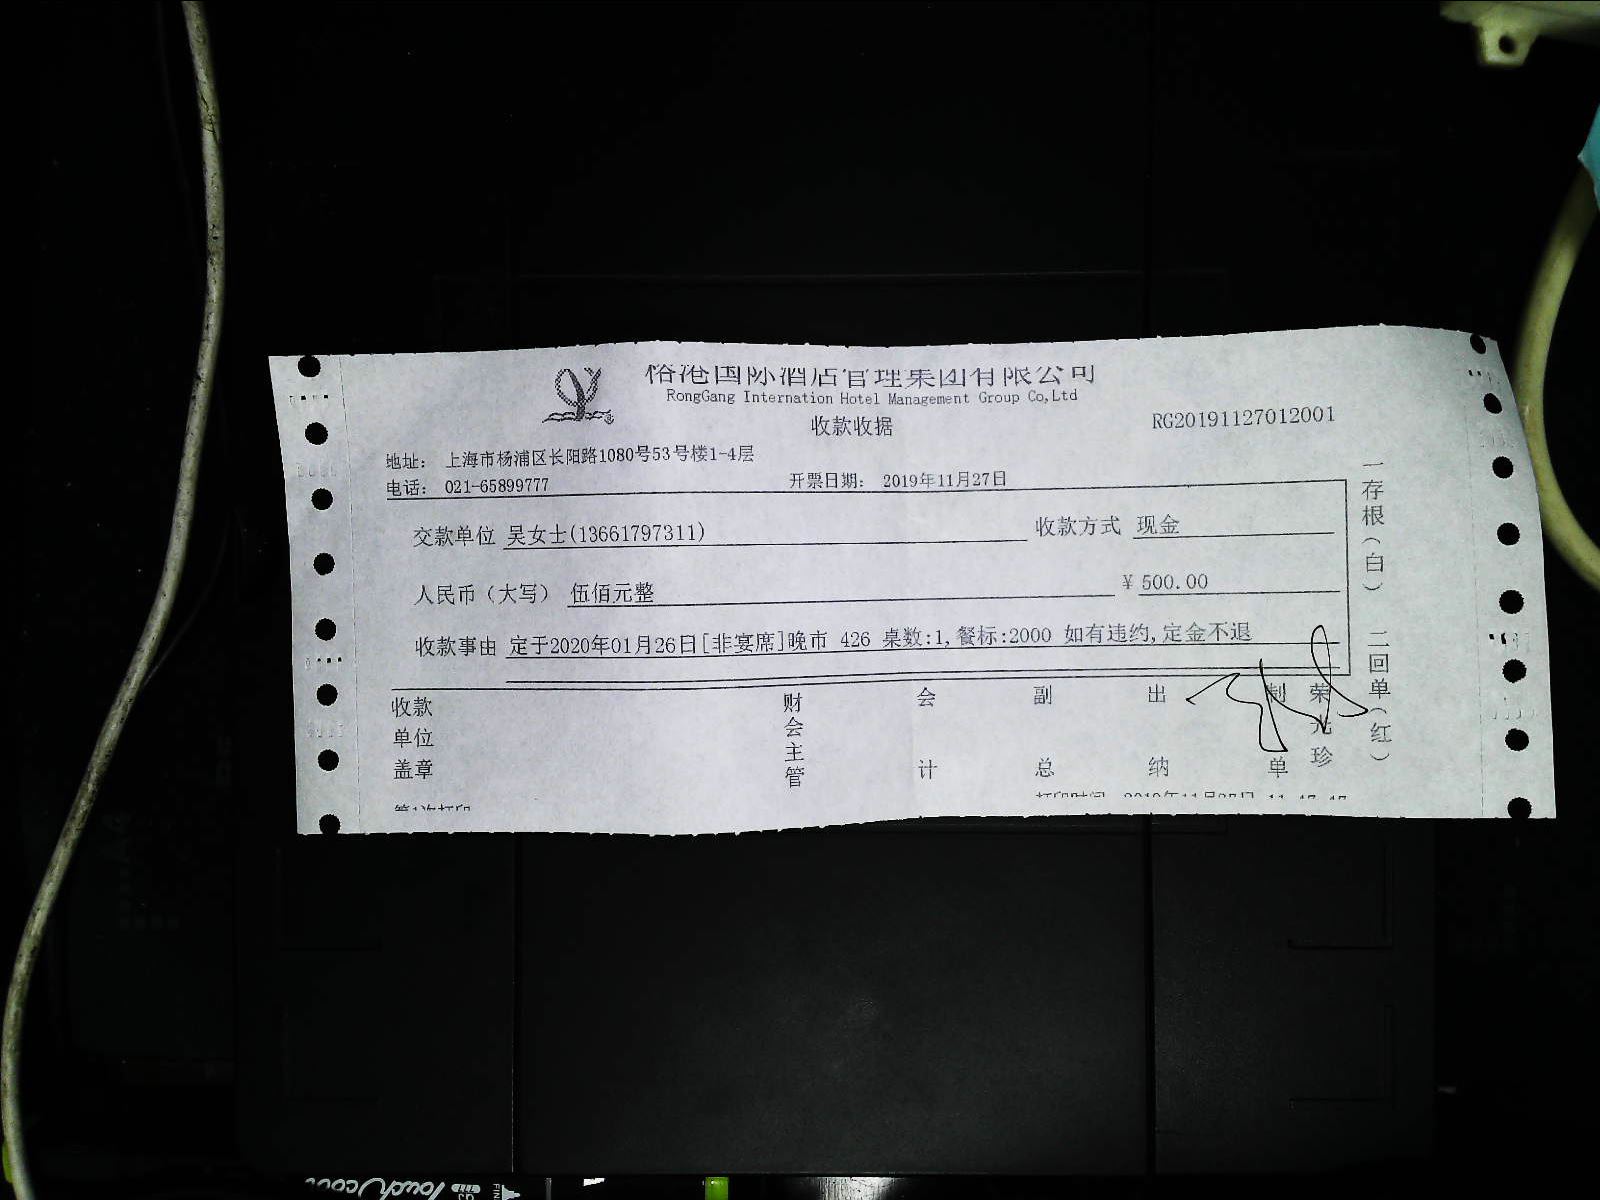 国际酒店管理集团有限公司
RongGang Internation Hotel Management Group Co,Ltd
收款收据
RG20191127012001
地址： 上海市杨浦区长阳路1080号53号楼1-4层
电话： 021-65899777
开票日期： 2019年11月27日
交款单位 吴女士(13661797311)
收款方式 现金
人民币（大写） 伍佰元整
¥ 500.00
收款事由 定于2020年01月26日[非宴席]晚市 426 桌数:1,餐标:2000 如有违约,定金不退
收款单位盖章
财会主管
会计
副总
出纳
制单
荣光珍
一存根（白） 二回单（红）
第1次打印
打印时间 2019年11月27日
Touch cool